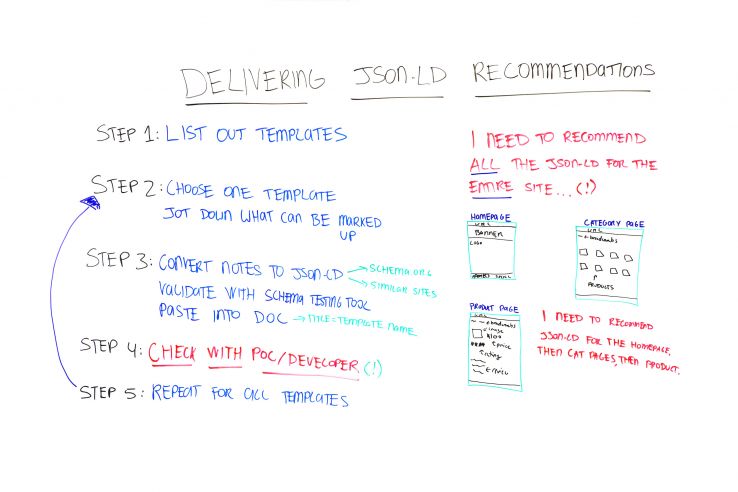 DELIVERING JSON-LD RECOMMENDATIONS
STEP 1: LIST OUT TEMPLATES
STEP 2: CHOOSE ONE TEMPLATE
JOT DOWN WHAT CAN BE MARKED
UP
STEP 3: CONVERT NOTES TO JSON-LD → SCHEMA.ORG
→ SIMILAR SITES
VALIDATE WITH SCHEMA TESTING TOOL
PASTE INTO DOC → TITLE = TEMPLATE NAME
STEP 4: CHECK WITH POC/DEVELOPER. (!)
STEP 5: REPEAT FOR ALL TEMPLATES
I NEED TO RECOMMEND
ALL THE JSON-LD FOR THE
ENTIRE SITE... (!)
HOMEPAGE
URL
BANNER
LOGO
CATEGORY PAGE
URL
breadcrumbs
PRODUCTS
PRODUCT PAGE
URL
breadcrumbs
image
price
rating
I NEED TO RECOMMEND
JSON-LD FOR THE HOMEPAGE,
THEN CAT PAGES, THEN PRODUCT.